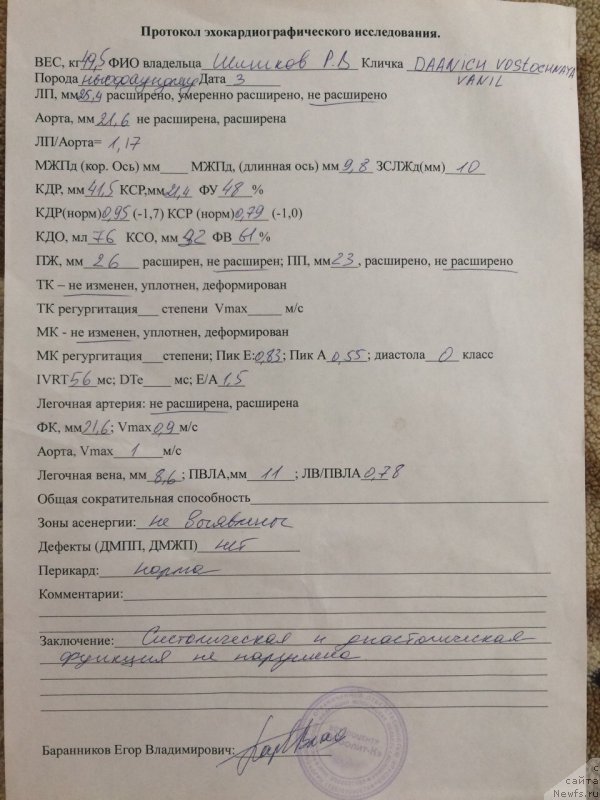 Протокол эхокардиографического исследования.
ВЕС, кг 49,5 ФИО владельца Шишков Р.В Кличка DAANICH VOSTOCHNAYA
Порода ньюфаундленд Дата 3 VANIL
ЛП, мм 25,4 расширено, умеренно расширено, не расширено
Аорта, мм 21,6 не расширена, расширена
ЛП/Аорта= 1,17
МЖПд (кор. Ось) мм____ МЖПд, (длинная ось) мм 9,8 ЗСЛЖд(мм) 10
КДР, мм 41,5 КСР,мм 21,4 ФУ 48 %
КДР(норм) 0,95 (-1,7) КСР (норм) 0,79 (-1,0)
КДО, мл 76 КСО, мм ФВ 81 %
ПЖ, мм 26 расширен, не расширен; ПП, мм 23, расширено, не расширено
ТК – не изменен, уплотнен, деформирован
ТК регургитация___ степени Vmax_____ м/с
МК - не изменен, уплотнен, деформирован
МК регургитация___степени; Пик Е: 0,83; Пик А 0,55; диастола 0 класс
IVRT 56 мс; DTe____ мс; Е/А 1,5
Легочная артерия: не расширена, расширена
ФК, мм 21,6; Vmax 0,9 м/с
Аорта, Vmax 1 м/с
Легочная вена, мм 8,6; ПВЛА,мм 11; ЛВ/ПВЛА 0,78
Общая сократительная способность
Зоны асенергии: не выявлено
Дефекты (ДМПП, ДМЖП) нет
Перикард: норма
Комментарии:
Заключение: Систолическая и диастолическая
функция не нарушена
Баранников Егор Владимирович:
с
сайта
Newfs.ru